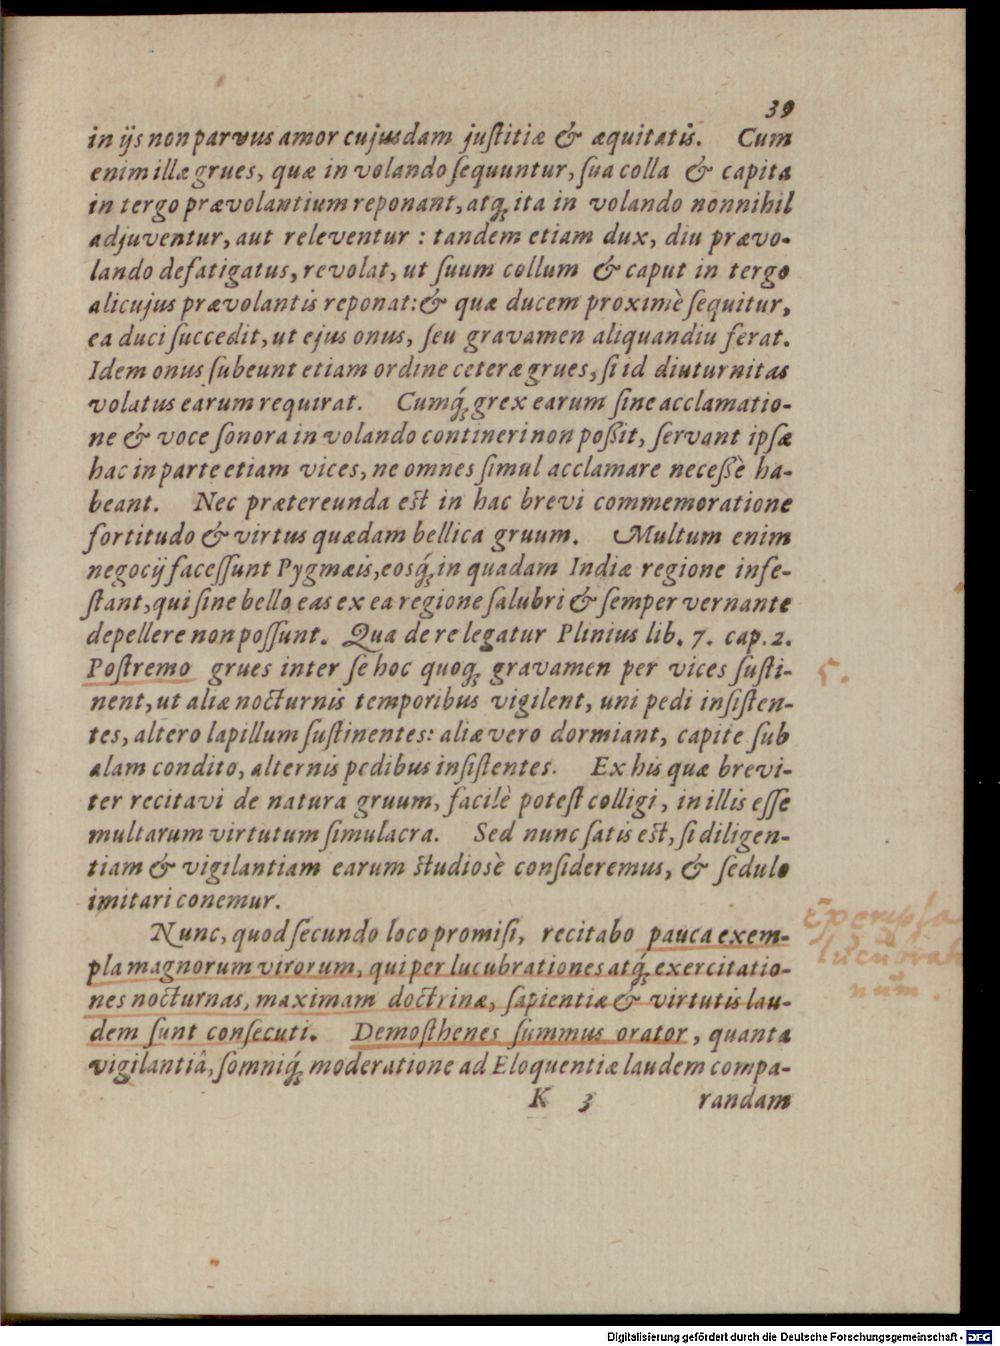 39
in ijs non parvus amor cujusdam juſtitiæ & æquitatis. Cum
enim illæ grues, quæ in volando ſequuntur, ſua colla & capita
in tergo prævolantium reponant, atq́ꝫ ita in volando nonnihil
adjuventur, aut releventur : tandem etiam dux, diu prævo-
lando defatigatus, revolat, ut ſuum collum & caput in tergo
alicujus prævolantis reponat: & quæ ducem proximè ſequitur,
ea duci ſuccedit, ut ejus onus, ſeu gravamen aliquandiu ferat.
Idem onus ſubeunt etiam ordine ceteræ grues, ſi id diuturnitas
volatus earum requirat. Cumq́ꝫ grex earum ſine acclamatio-
ne & voce ſonora in volando contineri non poßit, ſervant ipſæ
hac in parte etiam vices, ne omnes ſimul acclamare neceßè ha-
beant. Nec prætereunda est in hac brevi commemoratione
fortitudo & virtus quædam bellica gruum. Multum enim
negocij faceſſunt Pygmæis, eosq́ꝫ in quadam Indiæ regione infe-
ſtant, qui ſine bello eas ex ea regione ſalubri & ſemper vernante
depellere non poſſunt. Qua de re legatur Plinius lib. 7. cap. 2.
Poſtremo grues inter ſe hoc quoqꝫ gravamen per vices ſuſti-
nent, ut aliæ nocturnis temporibus vigilent, uni pedi inſiſten-
tes, altero lapillum ſuſtinentes: aliæ vero dormiant, capite ſub
alam condito, alternis pedibus inſiſtentes. Ex his quæ brevi-
ter recitavi de natura gruum, facilè poteſt colligi, in illis eſſe
multarum virtutum ſimulacra. Sed nunc ſatis est, ſi diligen-
tiam & vigilantiam earum studiosè conſideremus, & ſedulo
imitari conemur.
Nunc, quod ſecundo loco promiſi, recitabo pauca exem-
pla magnorum virorum, qui per lucubrationes atq́ꝫ exercitatio-
nes nocturnas, maximam doctrinæ, ſapientiæ & virtutis lau-
dem ſunt conſecuti. Demoſthenes ſummus orator, quanta
vigilantiâ, ſomniq́ꝫ moderatione ad Eloquentiæ laudem compa-
K 3 randam
5.
Exempla
lucubrati
num.
Digitalisierung gefördert durch die Deutsche Forschungsgemeinschaft - DFG